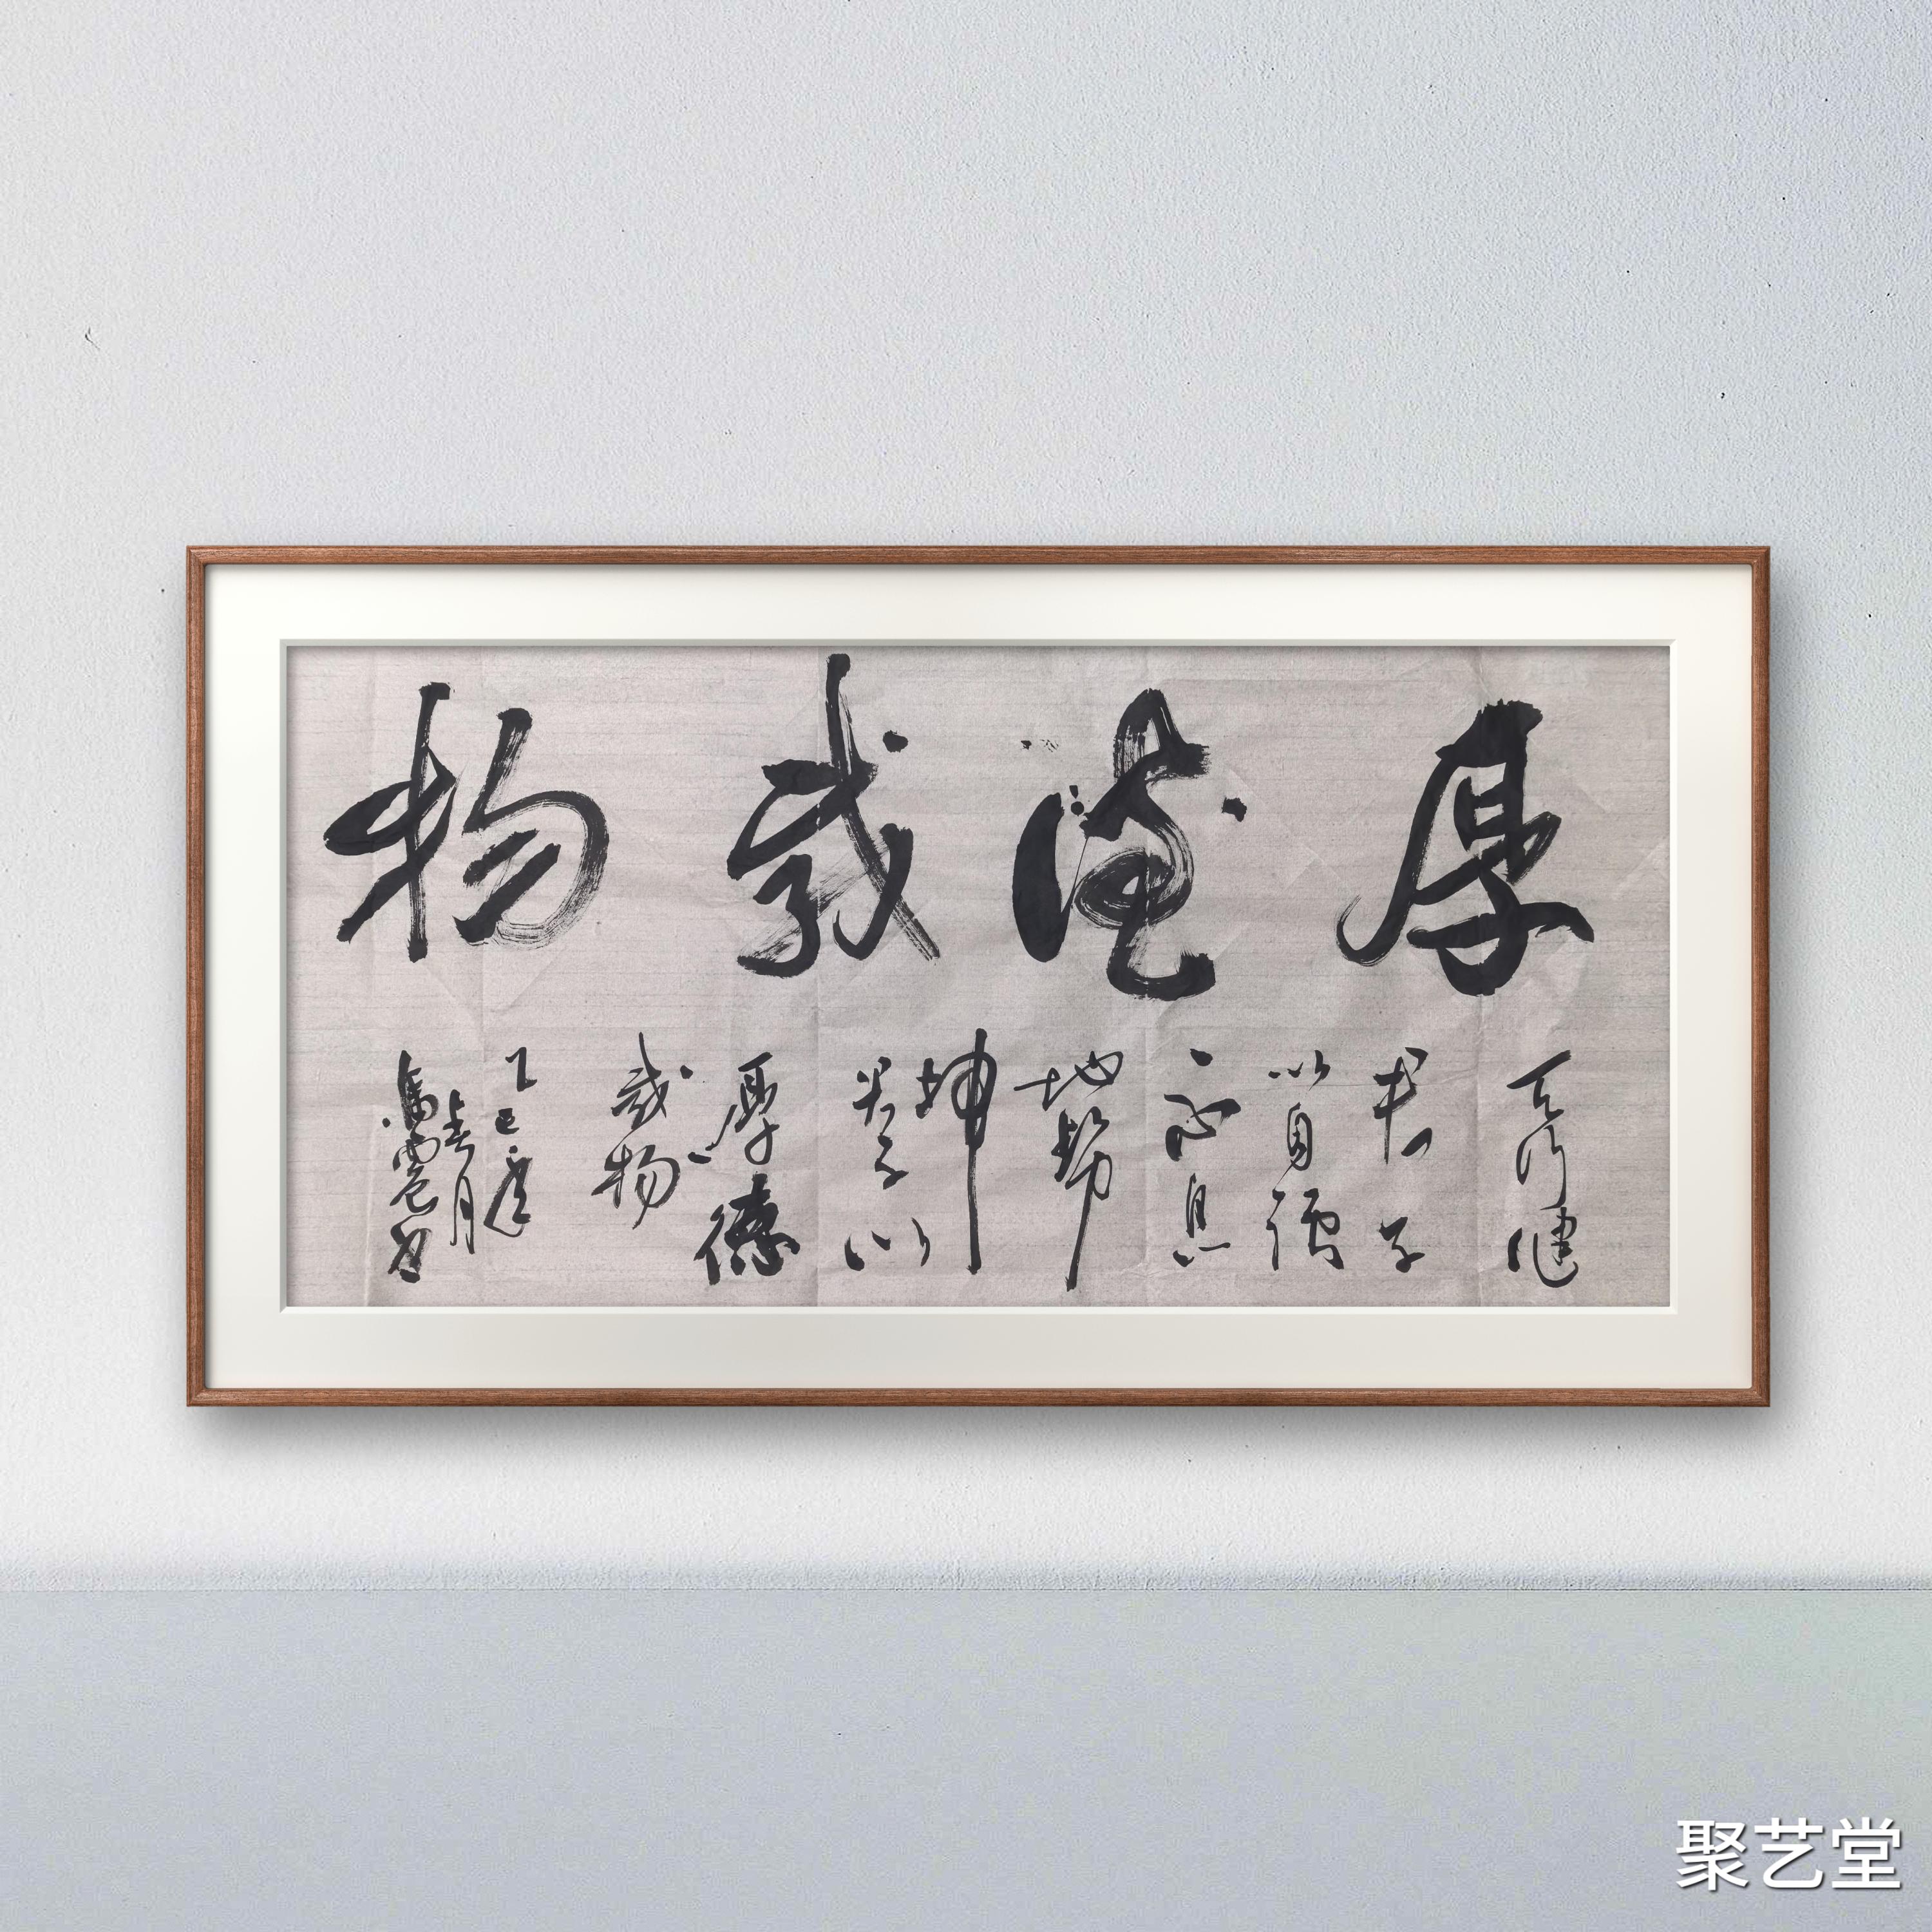 厚德載物
天行健
君子
以自強
不息
地勢
坤
君子以
厚德
載物
乙巳
春月
聚艺堂